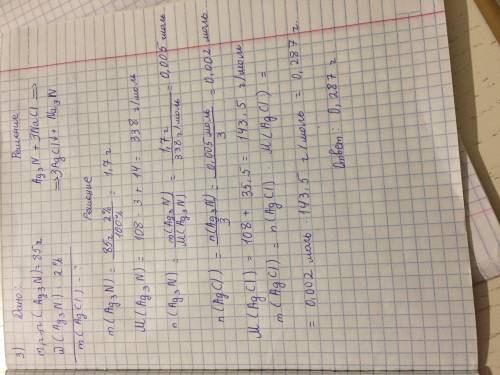 3) Дано: Решение
m р-ра (Ag₃N) = 85 г
ω (Ag₃N) = 2 %
m (AgCl) - ?
Ag₃N + 3NaCl =>
=> 3AgCl↓ + Na₃N
Решение
m (Ag₃N) = 85г · 2% / 100% = 1,7 г
M (Ag₃N) = 108 · 3 + 14 = 338 г/моль
n (Ag₃N) = m(Ag₃N) / M(Ag₃N) = 1,7 г / 338 г/моль = 0,005 моль
n (AgCl) = n(Ag₃N) / 3 = 0,005 моль / 3 = 0,002 моль
M (AgCl) = 108 + 35,5 = 143,5 г/моль
m (AgCl) = n (AgCl) · M (AgCl) =
= 0,002 моль · 143,5 г/моль = 0,287 г.
Ответ: 0,287 г